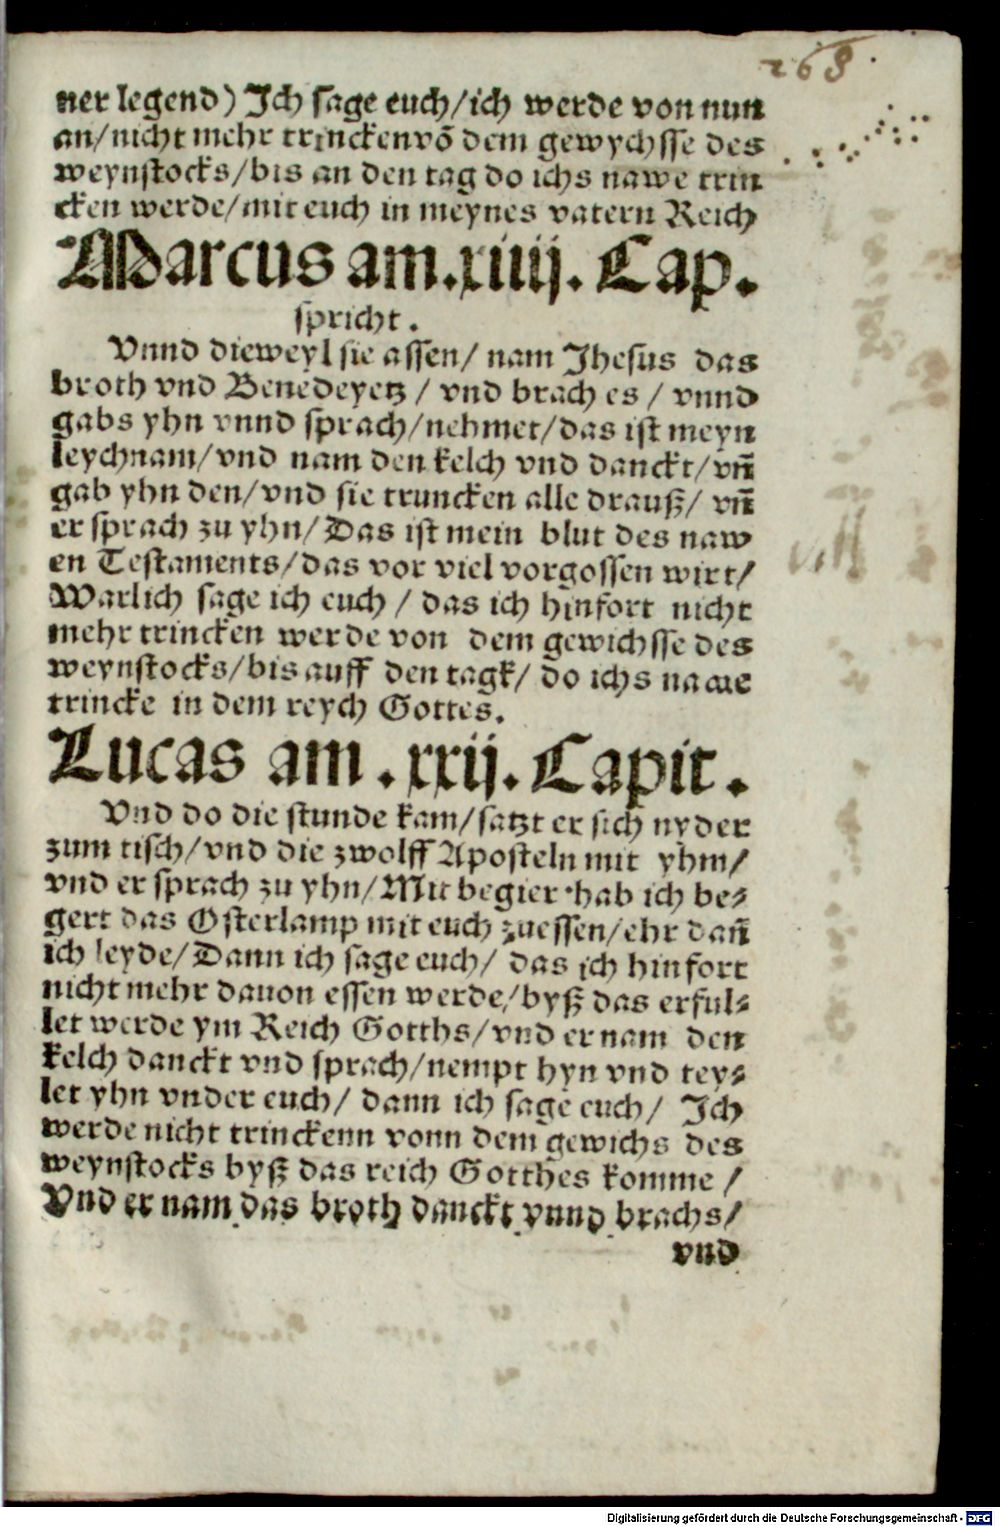 268
ner legend) Jch sage euch/ich werde von nun
an/nicht mehr trinckenvõ dem gewychsse des
weynstocks/bis an den tag do ichs nawe trin
cken werde/mit euch in meynes vatern Reich
Marcus am.xiiij. Cap.
spricht.
Vnnd dieweyl sie assen/ nam Jhesus das
broth vnd Benedeyetz / vnd brach es / vnnd
gabs yhn vnnd sprach/nehmet/das ist meyn
leychnam/vnd nam den kelch vnd danckt/vñ
gab yhn den/vnd sie truncken alle drauß/ vñ
er sprach zu yhn/Das ist mein blut des naw
en Testaments/das vor viel vorgossen wirt/
Warlich sage ich euch / das ich hinfort nicht
mehr trincken werde von dem gewichsse des
weynstocks/bis auff den tagk/ do ichs nawe
trincke in dem reych Gottes.
Lucas am .xxij. Capit.
Vnd do die stunde kam/satzt er sich nyder
zum tisch/vnd die zwolff Aposteln mit yhm/
vnd er sprach zu yhn/Mit begier hab ich be⸗
gert das Osterlamp mit euch zuessen/ehr dañ
ich leyde/Dann ich sage euch/ das ich hinfort
nicht mehr dauon essen werde/byß das erful⸗
let werde ym Reich Gotths/vnd er nam den
kelch danckt vnd sprach/nempt hyn vnd tey⸗
let yhn vnder euch/ dann ich sage euch/ Jch
werde nicht trinckenn vonn dem gewichs des
weynstocks byß das reich Gotthes komme /
Vnd er nam das broth danckt vnnd brachs/
vnd
Digitalisierung gefördert durch die Deutsche Forschungsgemeinschaft - DFG